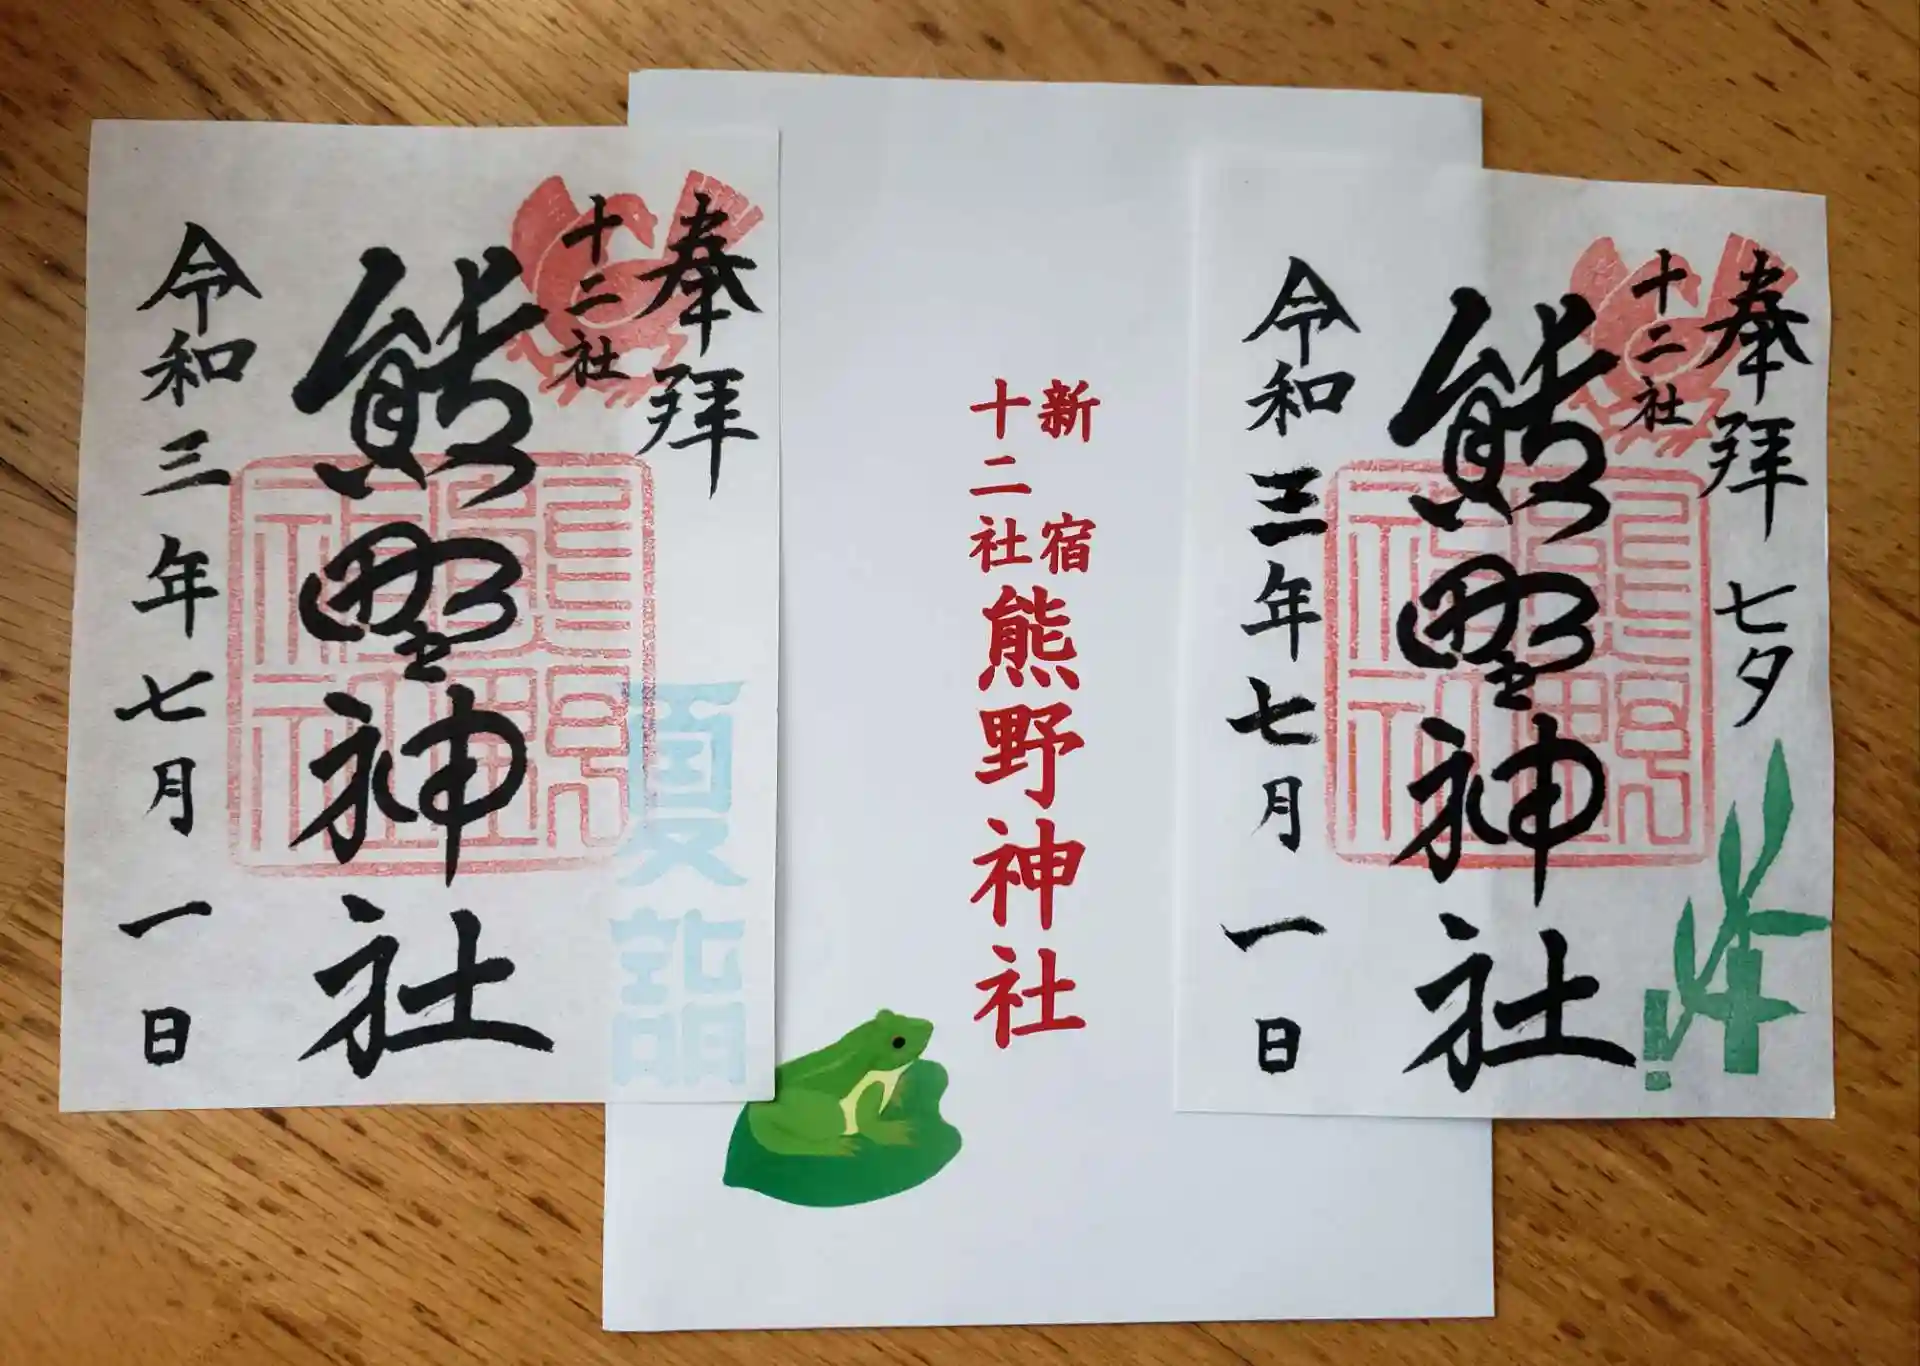 奉拝
十二社
熊野神社
令和三年七月一日
夏詣
新宿
十二社
熊野神社
奉拝 七夕
十二社
熊野神社
令和三年七月一日